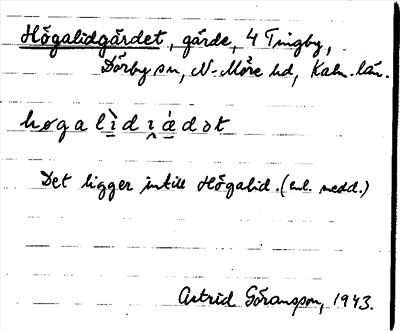 Högalidgärdet, gärde, 4 Tingby,
Dörby sn, N. Möre hd, Kalm. län.
Det ligger intill Högalid. (enl. medd.)
Astrid Göransson, 1943.